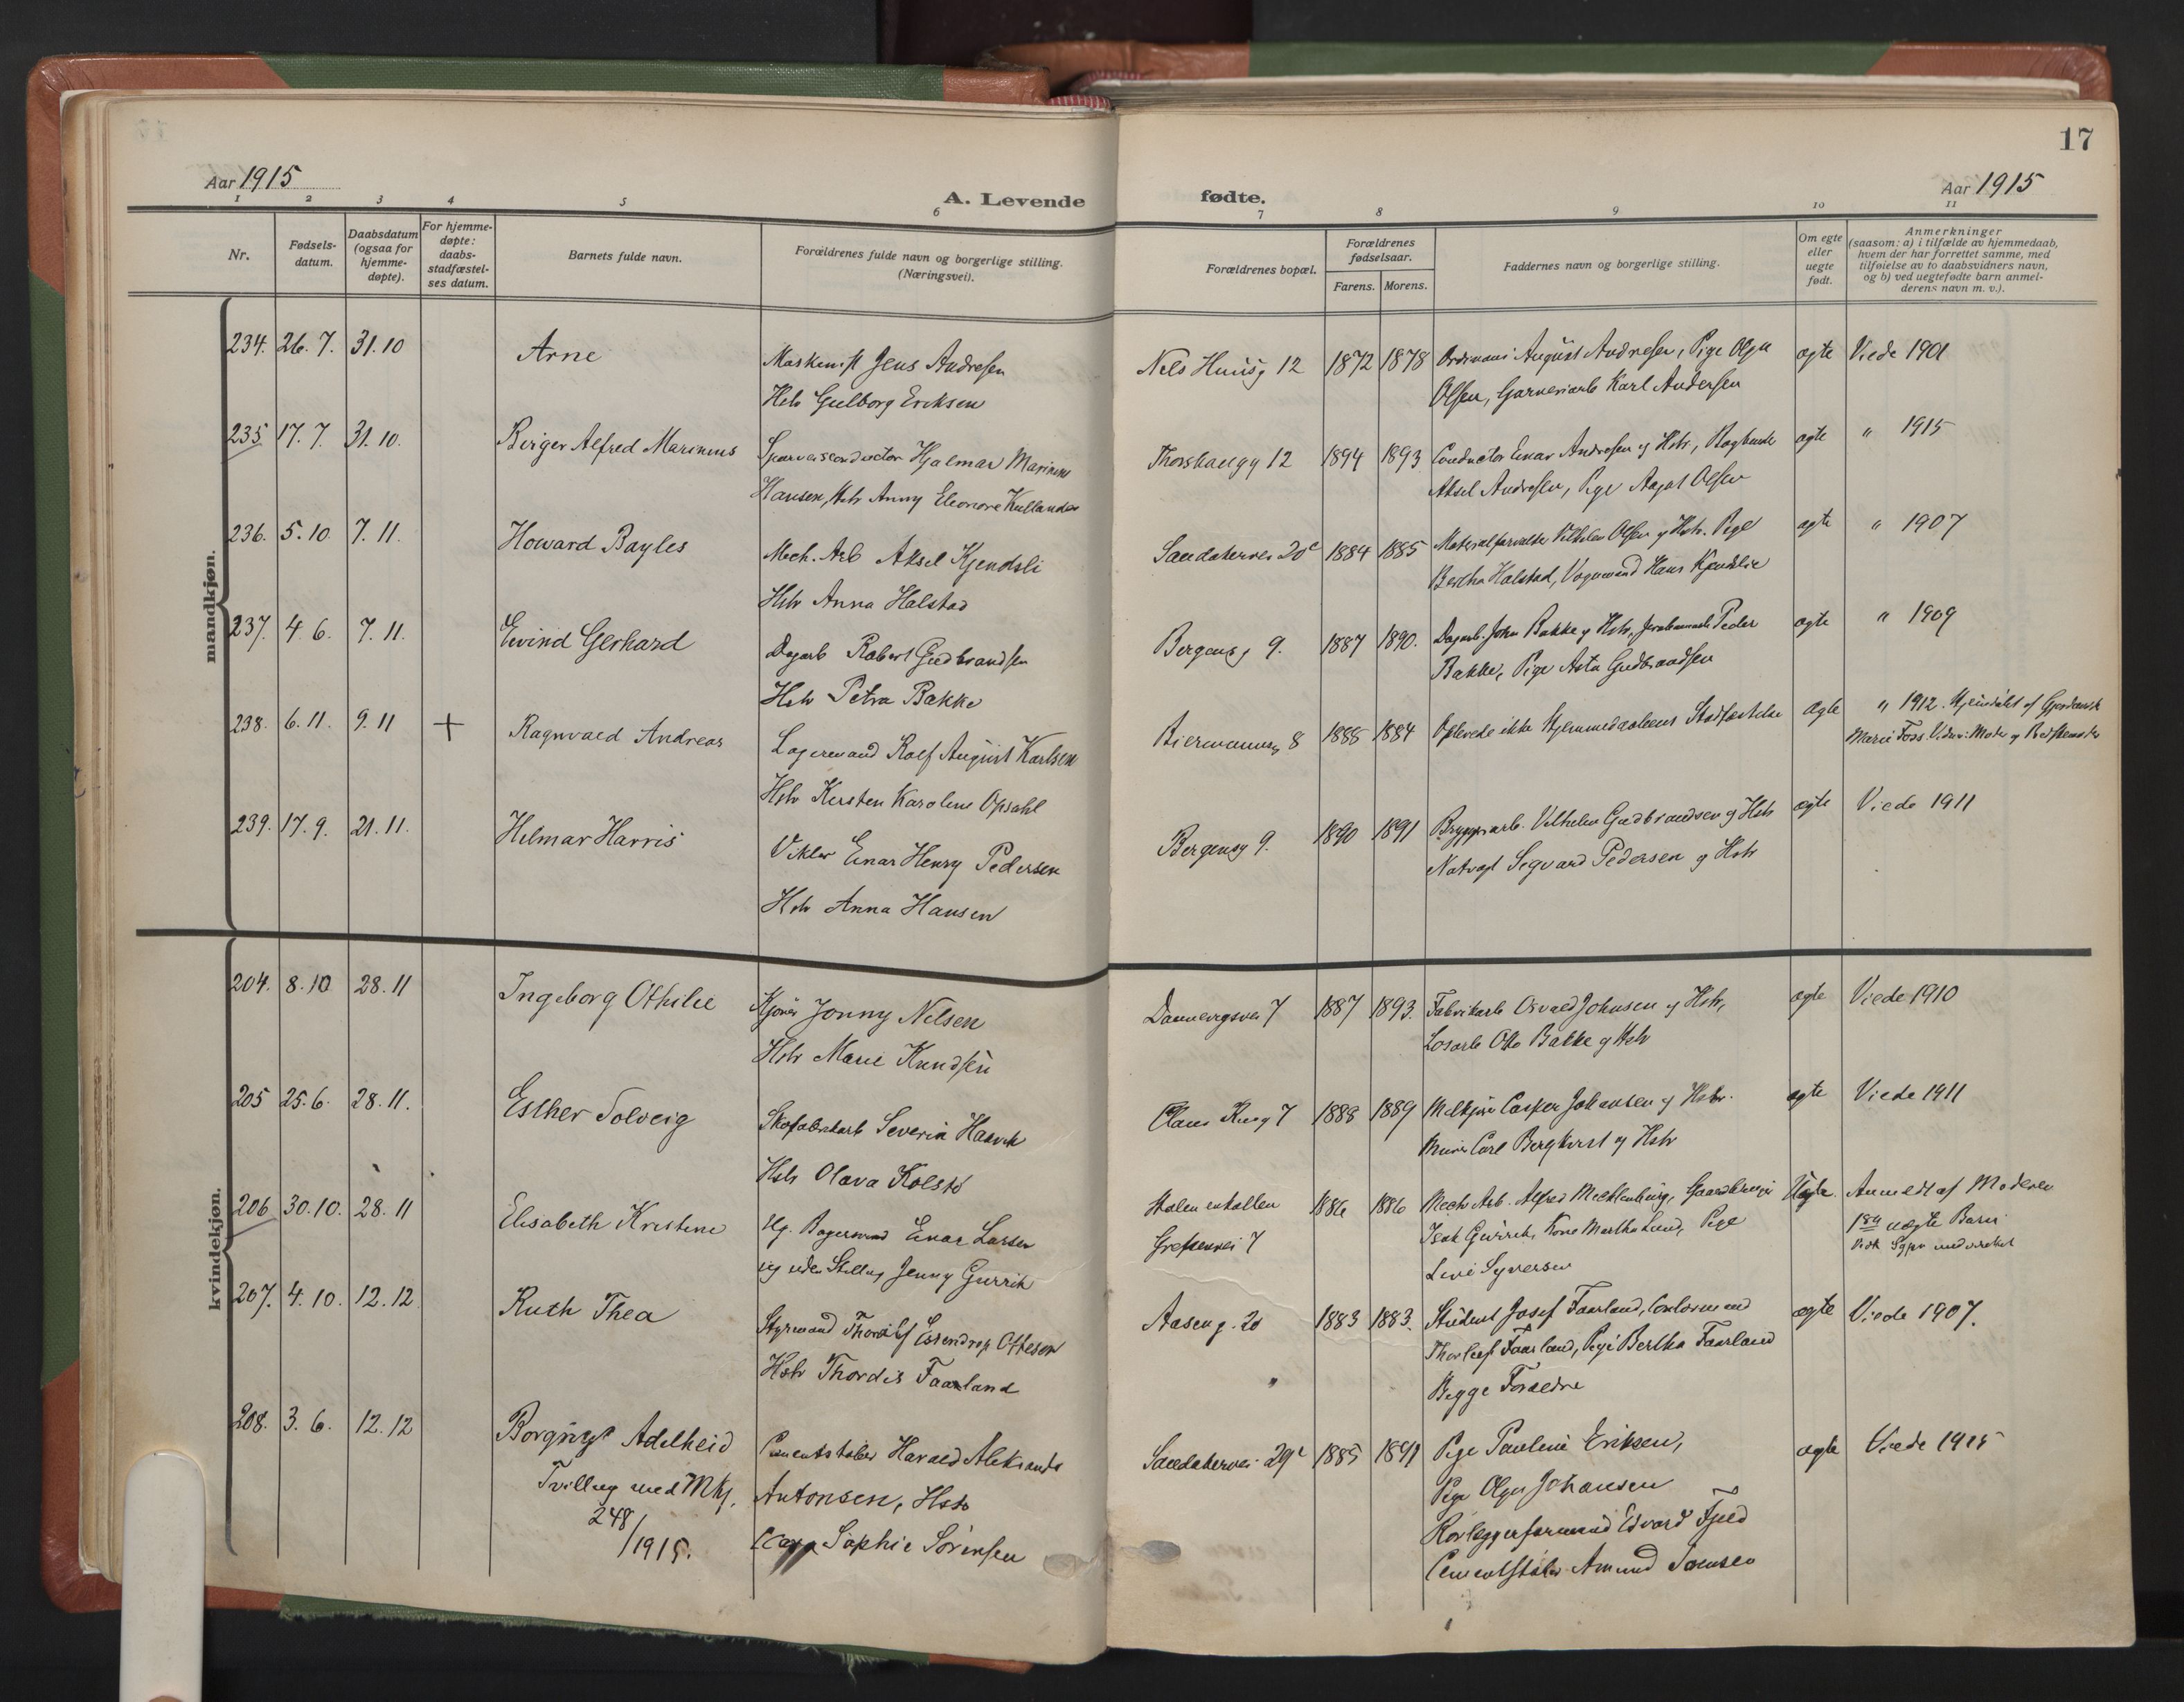 17
Aar 1915
A. Levende fødte.
Aar 1915
1 2 3 4 5 6 7 8 9 10 11
Nr.
Fødsels-
datum.
Daabsdatum
(ogsaa for
hjemme-
døpte).
For hjemme-
døpte:
daabs-
stadfæstel-
ses datum.
Barnets fulde navn.
Forældrenes fulde navn og borgerlige stilling.
(Næringsvei).
Forældrenes bopæl.
Forældrenes
fødselsaar.
Farens. Morens.
Faddernes navn og borgerlige stilling.
Om egte
eller
uegte
født.
Anmerkninger
(saasom: a) i tilfælde av hjemmedaab,
hvem der har forrettet samme, med
tilføielse av to daabsvidners navn,
og b) ved uegtefødte barn anmel-
derens navn m. v.).
mandkjøn.
234. 26. 7. 31. 10 Arne Maskinist Jens Andresen Nels Huusg 12 1872 1878 August Andresen, Pige Olga ægte Viede 1901
Hstr Gulborg Eriksen Olsen, Garveriarb Karl Andersen
235 17. 7. 31. 10. Birger Alfred Marinius Sporveisconductor Hjalmar Marinius Thorshaugg 12 1894 1893 Conductor Einar Andresen og Hstr, ægte " 1915
Hansen, Hstr Anny Eleonore Kullander Aksel Andresen, Pige Aagot Olsen
236. 5. 10 7. 11. Howard Bayles Mech. Arb Aksel Kjendsli Sandakervei 20c 1884 1885 Materialforvalter Vilhelm Olsen og Hstr. Pige ægte " 1907
Hstr Anna Halstad Bertha Halstad, Vognmand Hans Kjendslie
237. 4. 6. 7. 11. Eivind Gerhard Dagarb Robert Gudbrandsen Bergensg 9. 1887 1890. Dagarb. John Bakke og Hstr, Peder ægte " 1909
Hstr Petra Bakke Bakke, Pige Asta Gudbrandsen
238. 6. 11. 9. 11 + Ragnvald Andreas Lagermand Rolf August Karlsen Biermannsg 8 1888 1884 Oplevede ikke Hjemmedaabens Stadfæstelse ægte " 1912. Hjemdøbt af Gjordemoder
Hstr Kirsten Karoline Opsahl Marie Foss. Vidner: Moder og Bedstemoder
239. 17. 9. 21. 11. Hilmar Harris Vikler Einar Henry Pedersen Bergensg 9. 1890 1891 Bryggeriarb. Vilhelm Gudbrandsen og Hstr ægte Viede 1911
Hstr Anna Hansen Natvagt Sigvard Pedersen og Hstr
kvindekjøn.
204. 8. 10 28. 11 Ingeborg Othilie Kjører Jonny Nilsen Dannevigsvei 7 1887 1893. Fabrikarb Osvald Johnsen og Hstr, ægte Viede 1910
Hstr Marie Knudsen Losarb Otto Bakke og Hstr
205 25. 6. 28. 11. Esther Solveig Skofabrikarb Severin Haavik Claus Riisg 7 1888 1889 Melkjører Casper Johansen og Hstr. ægte Viede 1911
Hstr Olava Kolstø Murer Carl Bergkvist og Hstr
206 30. 10. 28. 11 Elisabeth Kristine Ug. Bagersvend Einar Larsen Stolen enkallen 1886 1886 Mech Arb. Alfred Mecklenburg, Gaardbruger Uægte. Anmeldt af Moderen
Ug uden Stilling Jenny Gurrik Grefsenvei 7 Isak Gurrik, Kone Martha Lund, Pige 1ste uægte Barn
Levi Syversen
207. 4. 10. 12. 12 Ruth Thea Styrmand Thorolf Essendrop Ottesen Aaseng. 20 1883 1883. Student Josef Faarland, Contormand ægte Viede 1907.
Hstr Thordis Faarland " Thorleif Faarland, Pige Bertha Faarland
Begge Forældre
208. 3. 6. 12. 12 Borgny Adelheid Cementstøber Harald Aleksander Sandakervei 29c 1885 1891 Pige Pauline Eriksen, ægte Viede 1915
Tvilling med Mkj. Antonsen, Hstr Pige Olga Johansen
248/1915. Clara Sophie Sørensen Rørlæggerformand Edvard Fjeld
Cementstøber Amund Jensen